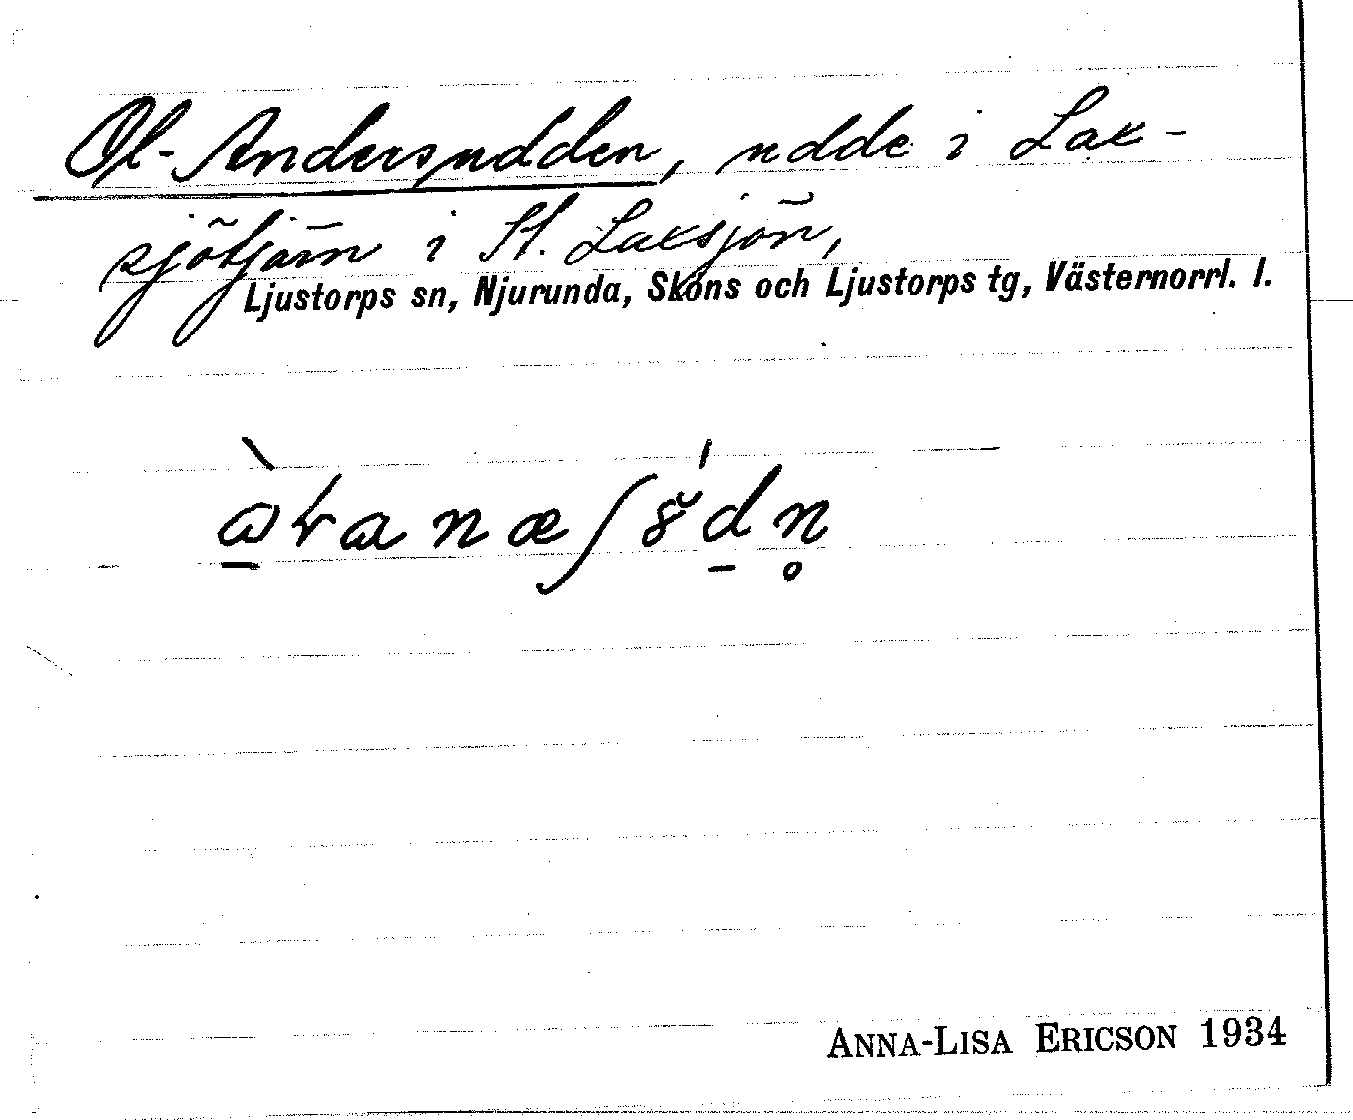 Ol-Andersudden, udde i Lak-
sjötjärn i St. Laksjön,
Ljustorps sn, Njurunda, Sköns och Ljustorps tg, Västernorrl. l.
ANNA-LISA ERICSON 1934